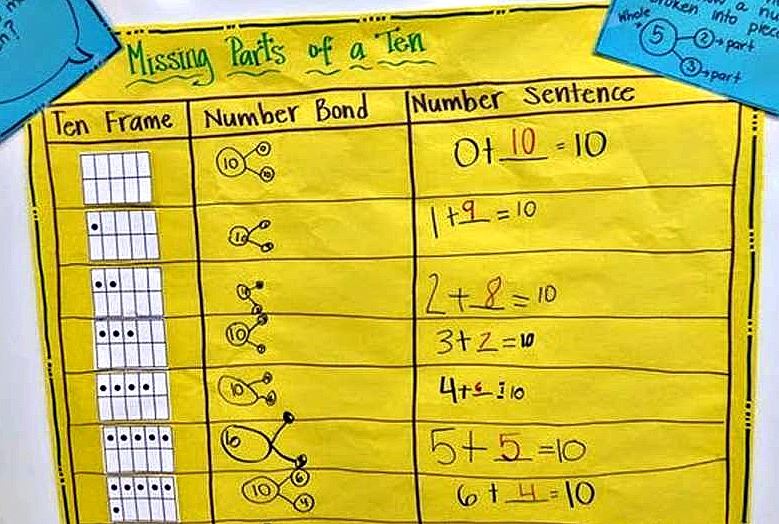 Whole
broken into piec
5
2 → part
3 → part
Missing Parts of a Ten
Ten Frame Number Bond Number Sentence
10 0 10 0+ 10 = 10
10 1+ 9 = 10
2+ 8 = 10
10 3+ 2 = 10
10 4+ = 10
5+ 5 = 10
10 6 4 6 + 4 = 10